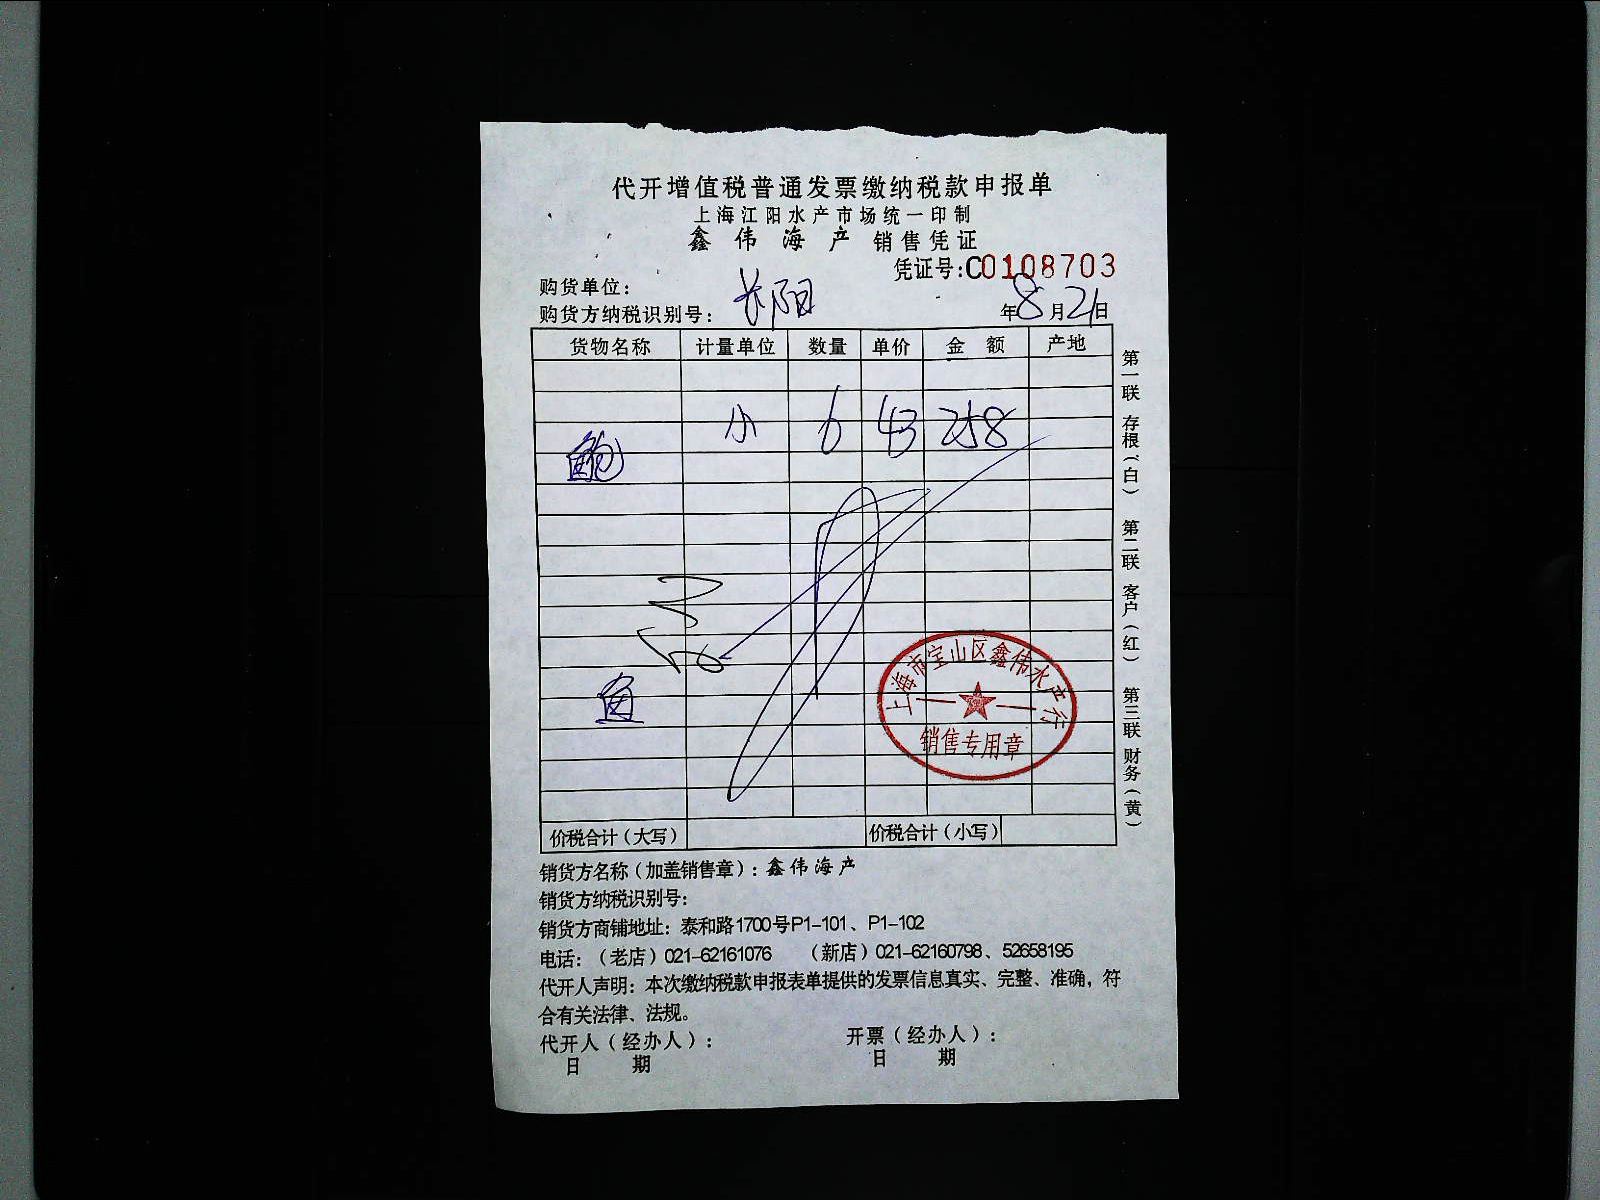 代开增值税普通发票缴纳税款申报单
上海江阳水产市场统一印制
鑫伟海产 销售凭证
凭证号:C0108703
购货单位:
长阳
购货方纳税识别号: 年8月21日
货物名称 计量单位 数量 单价 金额 产地
鲍 小 6 43 258
鱼
价税合计(大写) 价税合计(小写)
第一联 存根(白) 第二联 客户(红) 第三联 财务(黄)
上海市宝山区鑫伟水产行
销售专用章
销货方名称(加盖销售章):鑫伟海产
销货方纳税识别号:
销货方商铺地址:泰和路1700号P1-101、P1-102
电话:(老店)021-62161076 (新店)021-62160798、52658195
代开人声明:本次缴纳税款申报表单提供的发票信息真实、完整、准确,符
合有关法律、法规。
代开人(经办人): 开票(经办人):
日 期 日 期